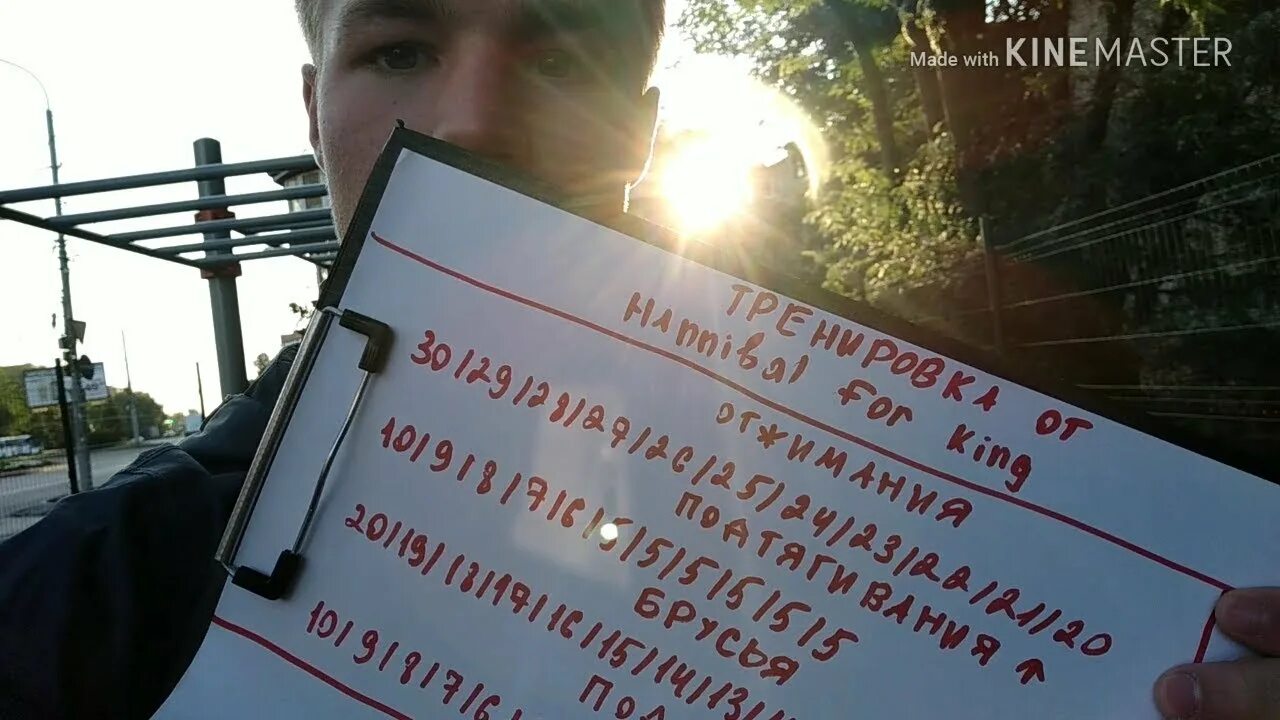 Made with KINEMASTER
ТРЕНИРОВКА ОТ
Hannibal for king
ОТЖИМАНИЯ
30/29/28/27/26/25/24/23/22/21/20
ПОДТЯГИВАНИЯ ↑
10/9/8/7/6/5/5/5/5/5/5
БРУСЬЯ
20/19/18/17/16/15/14/13/
ПОД
10/9/8/7/6/